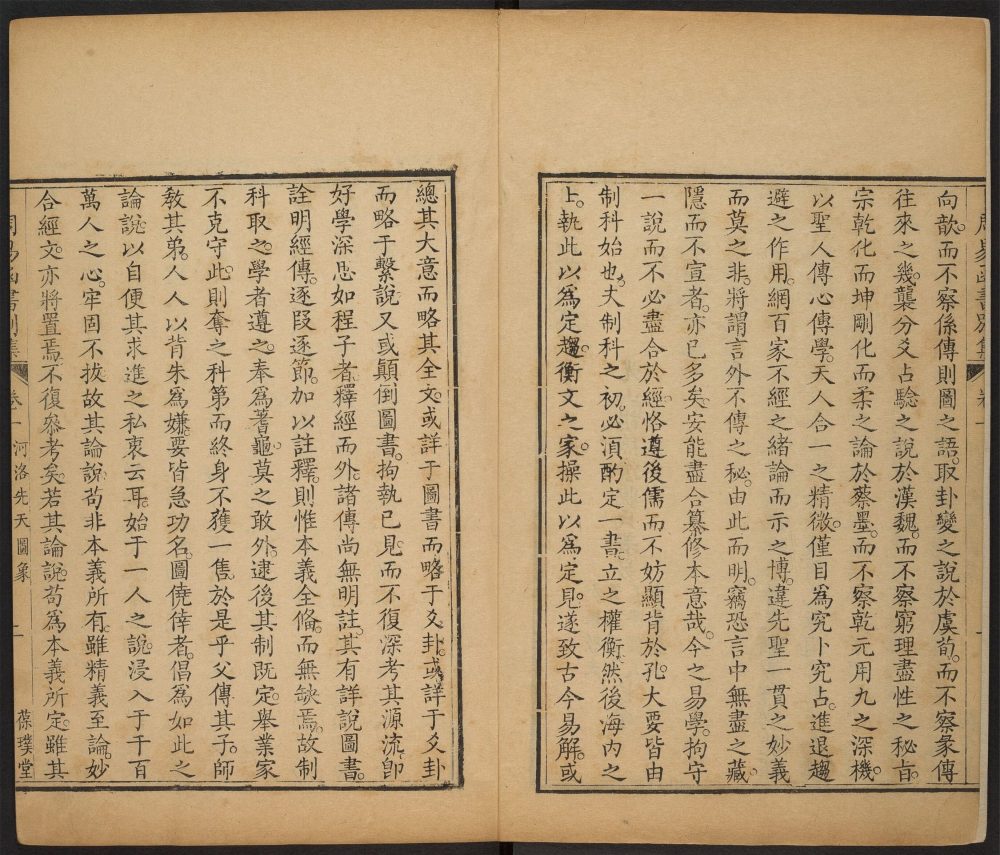 周易函書別集 卷一
向歆而不察係傳則圖之語取卦變之說於虞荀而不察彖傳
往來之幾襲分爻占驗之說於漢魏而不察窮理盡性之秘旨
宗乾化而坤剛化而柔之論於蔡墨而不察乾元用九之深機
以聖人傳心傳學天人合一之精微僅目為究卜究占進退趨
避之作用網百家不經之緒論而示之博違先聖一貫之妙義
而莫之非將謂言外不傳之秘由此而明竊恐言中無盡之藏
隱而不宣者亦已多矣安能盡合纂修本意哉今之易學拘守
一說而不必盡合於經恪遵後儒而不妨顯背於孔大要皆由
制科始也夫制科之初必湏酌定一書立之權衡然後海内之
上執此以為定趨衡文之家操此以為定見遂致古今易解或
總其大意而略其全文或詳于圖書而略于爻卦或詳于爻卦
而略于繫說又或顛倒圖書拘執已見而不復深考其源流卽
好學深思如程子者釋經而外諸傳尚無明註其有詳說圖書
詮明經傳逐段逐節加以註釋則惟本義全俻而無缺焉故制
科取之學者遵之奉為蓍龜莫之敢外逮後其制既定舉業家
不克守此則奪之科第而終身不獲一售於是乎父傳其子師
敎其弟人人以背朱為嫌要皆急功名圖僥倖者倡為如此之
論說以自便其求進之私衷云耳始于一人之說浸入于千百
萬人之心牢固不拔故其論說苟非本義所有雖精義至論妙
合經文亦將置焉不復叅考矣若其論說苟為本義所定雖其
周易函書別集 卷一 河洛先天圖象 二 葆璞堂